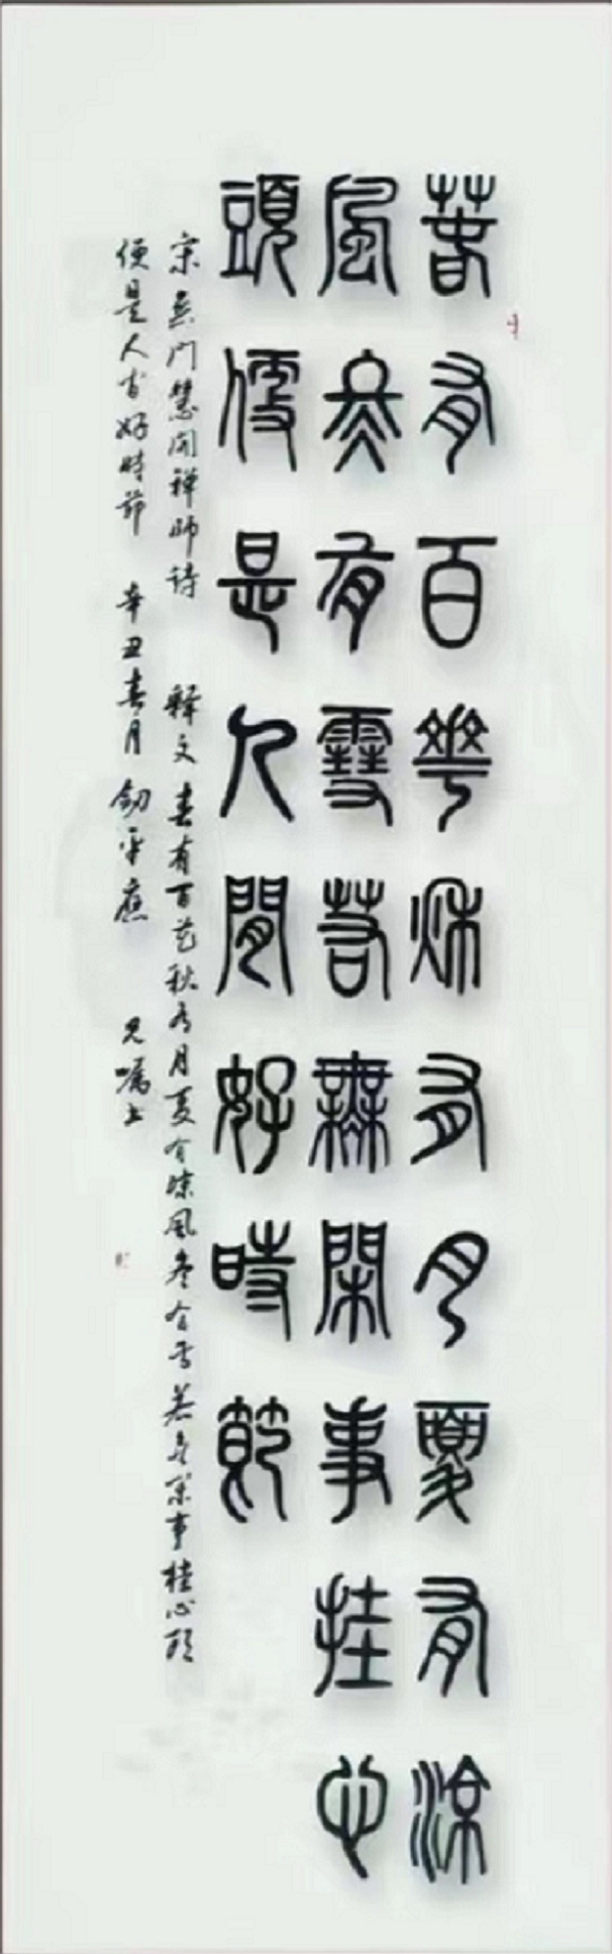 春有百花秋有月夏有涼
風冬有雪若無閑事挂心
頭便是人間好時節
宋無門慧開禅師詩 釋文 春有百花秋有月夏有凉風冬有雪若無閑事挂心頭
便是人間好時節 辛丑春月 劍平應 兄囑書